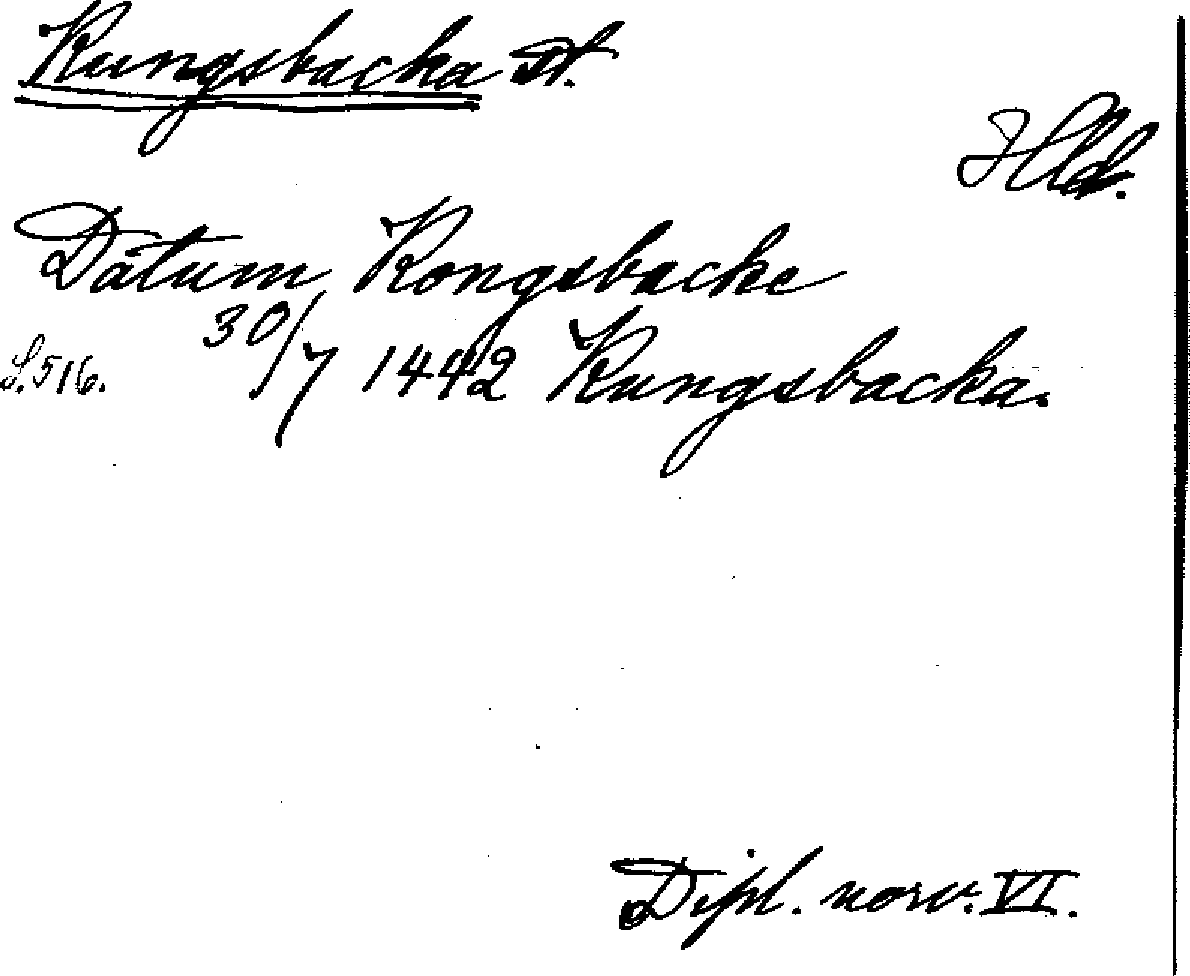 Kungsbacka St.
Hld.
Datum Kongsbacke
S. 516. 30/7 1442 Kungsbacka.
Dipl. norv. VI.